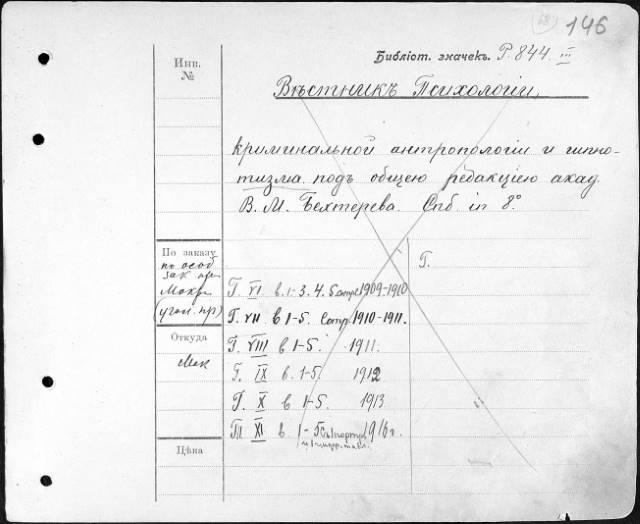 146
Библіот. значекъ. Р. 844. III
Инв.
№
Вѣстникъ Психологіи,
криминальной антропологіи и гипно-
тизма подъ общею редакціею акад.
В. М. Бехтерева. Спб. in 8°
По заказу
по особ
зак
(угол. пр)
Откуда
Цѣна
Г.
Г. VI в. 1-3. 4. 5 1909-1910
Г. VII в 1-5. 1910-1911.
Г. VIII в 1-5. 1911.
Г. IX в. 1-5. 1912
Г. X в 1-5. 1913
XI в 1-5 1916 г.